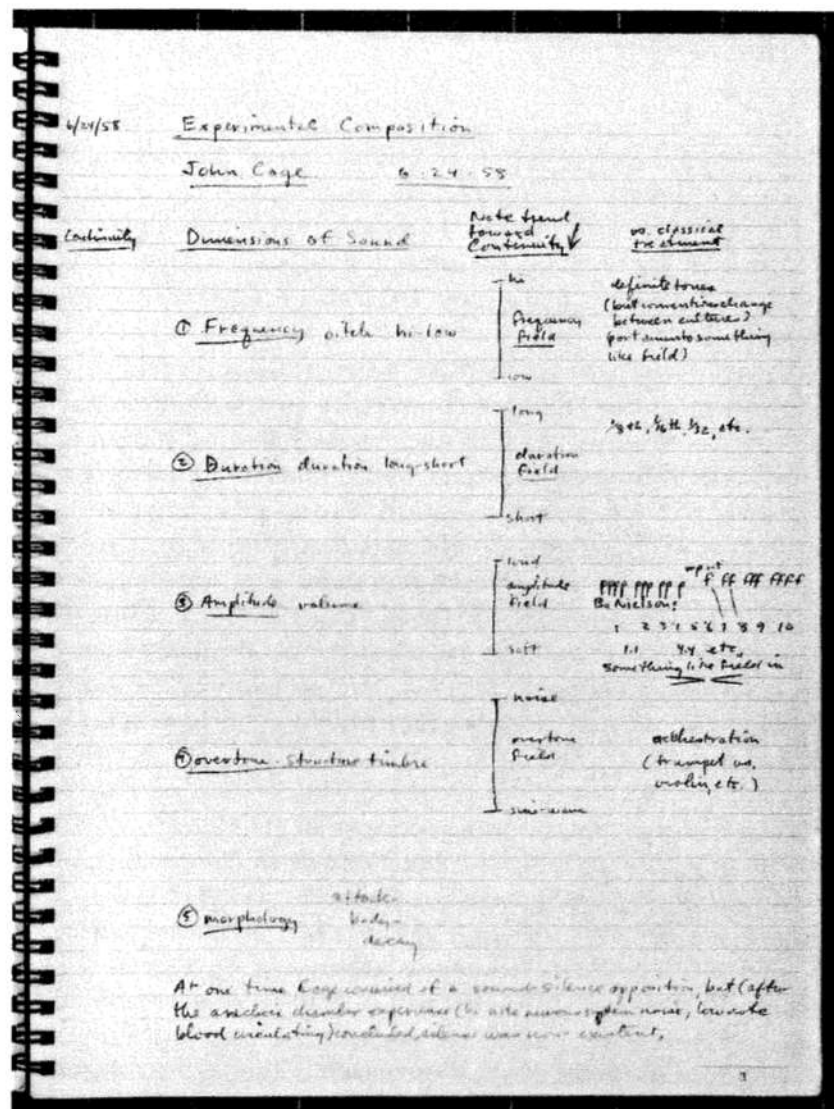 6/24/58
Experimental Composition
John Cage 6-24-58
Continuity
Dimensions of Sound
Note trend
toward
Continuity ↓
vs. classical
treatment
① Frequency pitch hi-low
hi
frequency
field
low
definite tones
(but conventions change
between cultures)
portamento something
like field)
② Duration duration long-short
long
duration
field
short
1/8th, 1/16th, 1/32, etc.
③ Amplitude volume
loud
amplitude
field
soft
mp mf
pppp ppp pp p f ff fff ffff
Bo Nielson:
1 2 3 4 5 6 7 8 9 10
1.1 4.4 etc.
something like field in
④ overtone-structure timbre
noise
overtone
field
sine-wave
orchestration
(trumpet vs.
violin, etc.)
⑤ morphology
attack-
body-
decay
At one time Cage conceived of a sound-silence opposition, but (after
the anechoic chamber experience (hi note nervous system noise, low note
blood circulating) concluded silence was non existent.
3